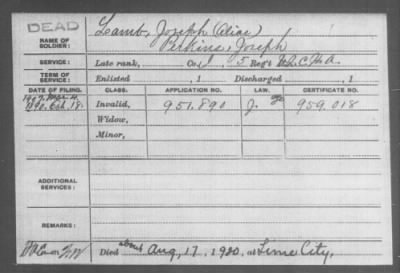 DEAD
NAME OF SOLDIER: Lamb, Joseph (Alias)
Perkins, Joseph
SERVICE: Late rank, Co. I, 5 Reg't U.S.C.H.A.
TERM OF SERVICE: Enlisted , 1 Discharged , 1
DATE OF FILING. CLASS. APPLICATION NO. LAW. CERTIFICATE NO.
1890. Oct. 18. Invalid, 951.890 J. 959.018
Widow,
Minor,
ADDITIONAL SERVICES:
REMARKS:
Died about Aug, 17, 1920, at Lime City,